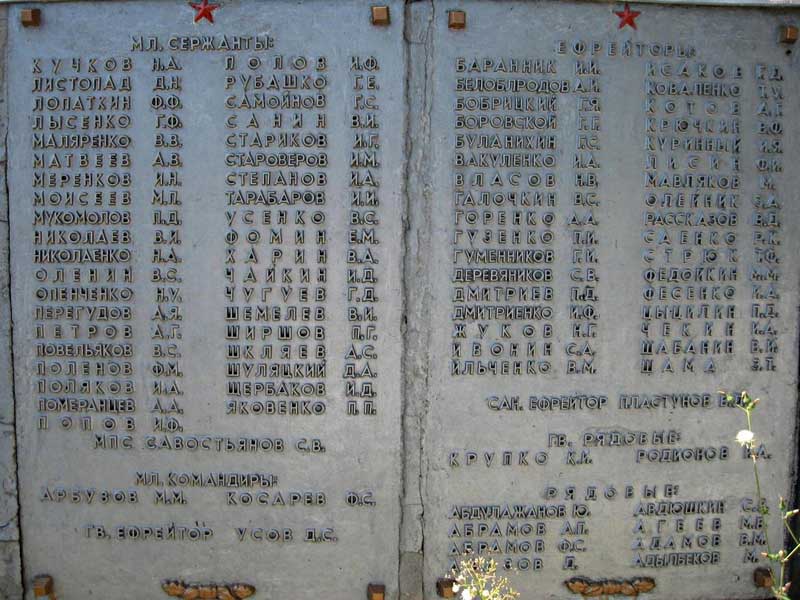 МЛ. СЕРЖАНТЫ:
КУЧКОВ Н.А. ПОПОВ И.Ф.
ЛИСТОПАД Д.Н. РУБАШКО Г.Е.
ЛОПАТКИН Ф.Ф. САМОЙНОВ Г.С.
ЛЫСЕНКО Г.Ф. САНИН В.И.
МАЛЯРЕНКО В.В. СТАРИКОВ И.Г.
МАТВЕЕВ А.В. СТАРОВЕРОВ И.М.
МЕРЕНКОВ И.Н. СТЕПАНОВ И.А.
МОИСЕЕВ М.П. ТАРАБАРОВ И.И.
МУКОМОЛОВ П.Д. УСЕНКО В.С.
НИКОЛАЕВ В.И. ФОМИН Е.М.
НИКОЛАЕНКО Н.А. ХАРИН В.А.
ОЛЕНИН В.С. ЧАЙКИН И.Д.
ОЛЕНЧЕНКО Н.У. ЧУГУЕВ Г.Д.
ПЕРЕГУДОВ А.Я. ШЕМЕЛЕВ В.И.
ПЕТРОВ А.Г. ШИРШОВ П.Г.
ПОВЕЛЬЯКОВ В.С. ШКЛЯЕВ А.С.
ПОЛЕНОВ Ф.М. ШУЛЯЦКИЙ Д.А.
ПОЛЯКОВ И.А. ЩЕРБАКОВ И.Д.
ПОМЕРАНЦЕВ А.А. ЯКОВЕНКО П.П.
ПОПОВ И.Ф.
МПС САВОСТЬЯНОВ С.В.
МЛ. КОМАНДИРЫ:
АРБУЗОВ М.М. КОСАРЕВ Ф.С.
ГВ. ЕФРЕЙТОР УСОВ Д.С.
ЕФРЕЙТОРЫ:
БАРАННИК И.И. ИСАКОВ Г.Д.
БЕЛОБЛРОДОВ А.И. КОВАЛЕНКО
БОБРИЦКИЙ Г.Я. КОТОВ А.Г.
БОРОВСКОЙ Г.Г. КРЮЧКИН В.Ф.
БУЛАНИХИН Г.С. КУРИННЫЙ И.Я.
ВАКУЛЕНКО И.А. ЛИСИН Ф.И.
ВЛАСОВ Н.В. МАВЛЯКОВ М.
ГАЛОЧКИН В.С. ОЛЕЙНИК
ГОРЕНКО А.А. РАССКАЗОВ В.Д.
ГУЗЕНКО П.И. САЕНКО Р.К.
ГУМЕННИКОВ Г.И. СТРЮК Т.Ф.
ДЕРЕВЯНИКОВ С.В. ФЕДОЙКИН М.М.
ДМИТРИЕВ П.Д. ФЕСЕНКО И.А.
ДМИТРИЕНКО И.Ф. ЦЫЦИЛИН П.Д.
ЖУКОВ Н.Г. ЧЕКИН И.А.
ИВОНИН С.А. ШАБАНИН В.И.
ИЛЬЧЕНКО В.М. ШАМА З.Т.
САН. ЕФРЕЙТОР ПЛАСТУНОВ В.Д.
ГВ. РЯДОВЫЕ:
КРУПКО К.И. РОДИОНОВ
РЯДОВЫЕ:
АБДУЛАЖАНОВ Ю. АВДЮШКИН
АБРАМОВ А.П. АГЕЕВ М.В.
АБРАМОВ Ф.С. АДАМОВ В.М.
Д. АДЫЛБЕКОВ М.